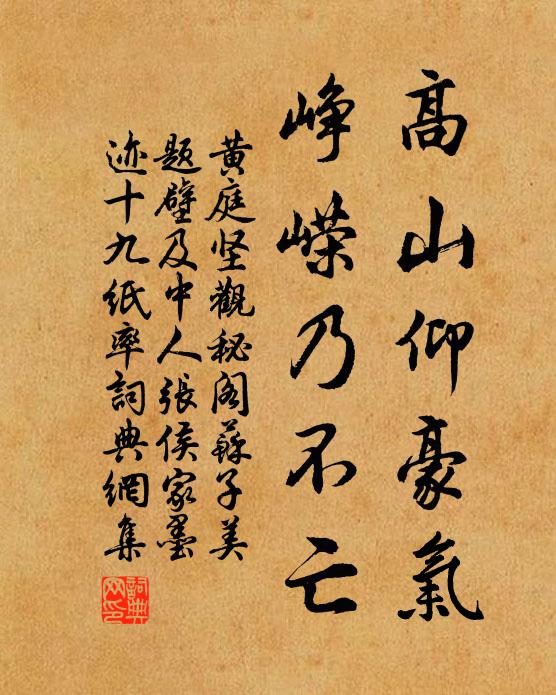 高山仰豪氣
峥嵘乃不亡
黄庭坚觀秘阁蘇子美
题壁及中人張侯家墨
迹十九紙率詞典網集
詞典
网印